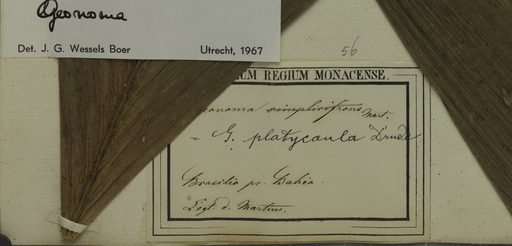 Geonoma
Det. J. G. Wessels Boer Utrecht, 1967
56
UM REGIUM MONACENSE.
eonoma simplicifrons Mart.
- G. platycaula Drude
Brasilia pr. Bahia.
Legt d. Martius.